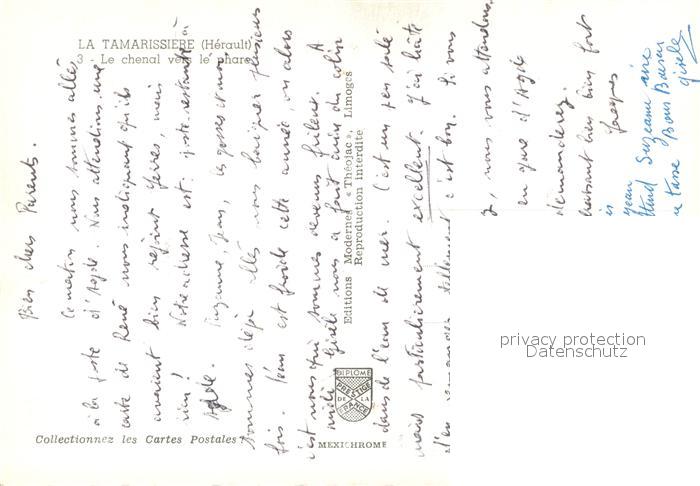 LA TAMARISSIERE (Hérault)
3 - Le chenal vers le phare
Bien chers Parents.
Ce matin nous sommes allés
à la poste d'Agde. Nous attendions une
carte de René nous indiquant qu'ils
avaient bien rejoint
rien! Notre adresse est: poste restante à
Agde. Suzanne, Jean, les gosses et nous
sommes déjà allés nous baigner plusieurs
fois. L'eau est froide cette année, ou alors
c'est nous qui sommes devenus frileux. A
midi Gisèle nous a fait cuire du colin
dans de l'eau de mer. C'est un peu salé
mais particulièrement excellent. J'ai hâte
d'en remanger tellement c'est bon. Si vous
y, nous vous attendons
en gare d'Agde
demanderez.
bien fort
Jacques
Jean
Suzanne
Bons Baisers
la tasse
Gisele
Editions Modernes «Théojac», Limoges
Reproduction interdite
DIPLOME
PRESTIGE
DE LA
FRANCE
Collectionnez les Cartes Postales
MEXICHROME
privacy protection
Datenschutz